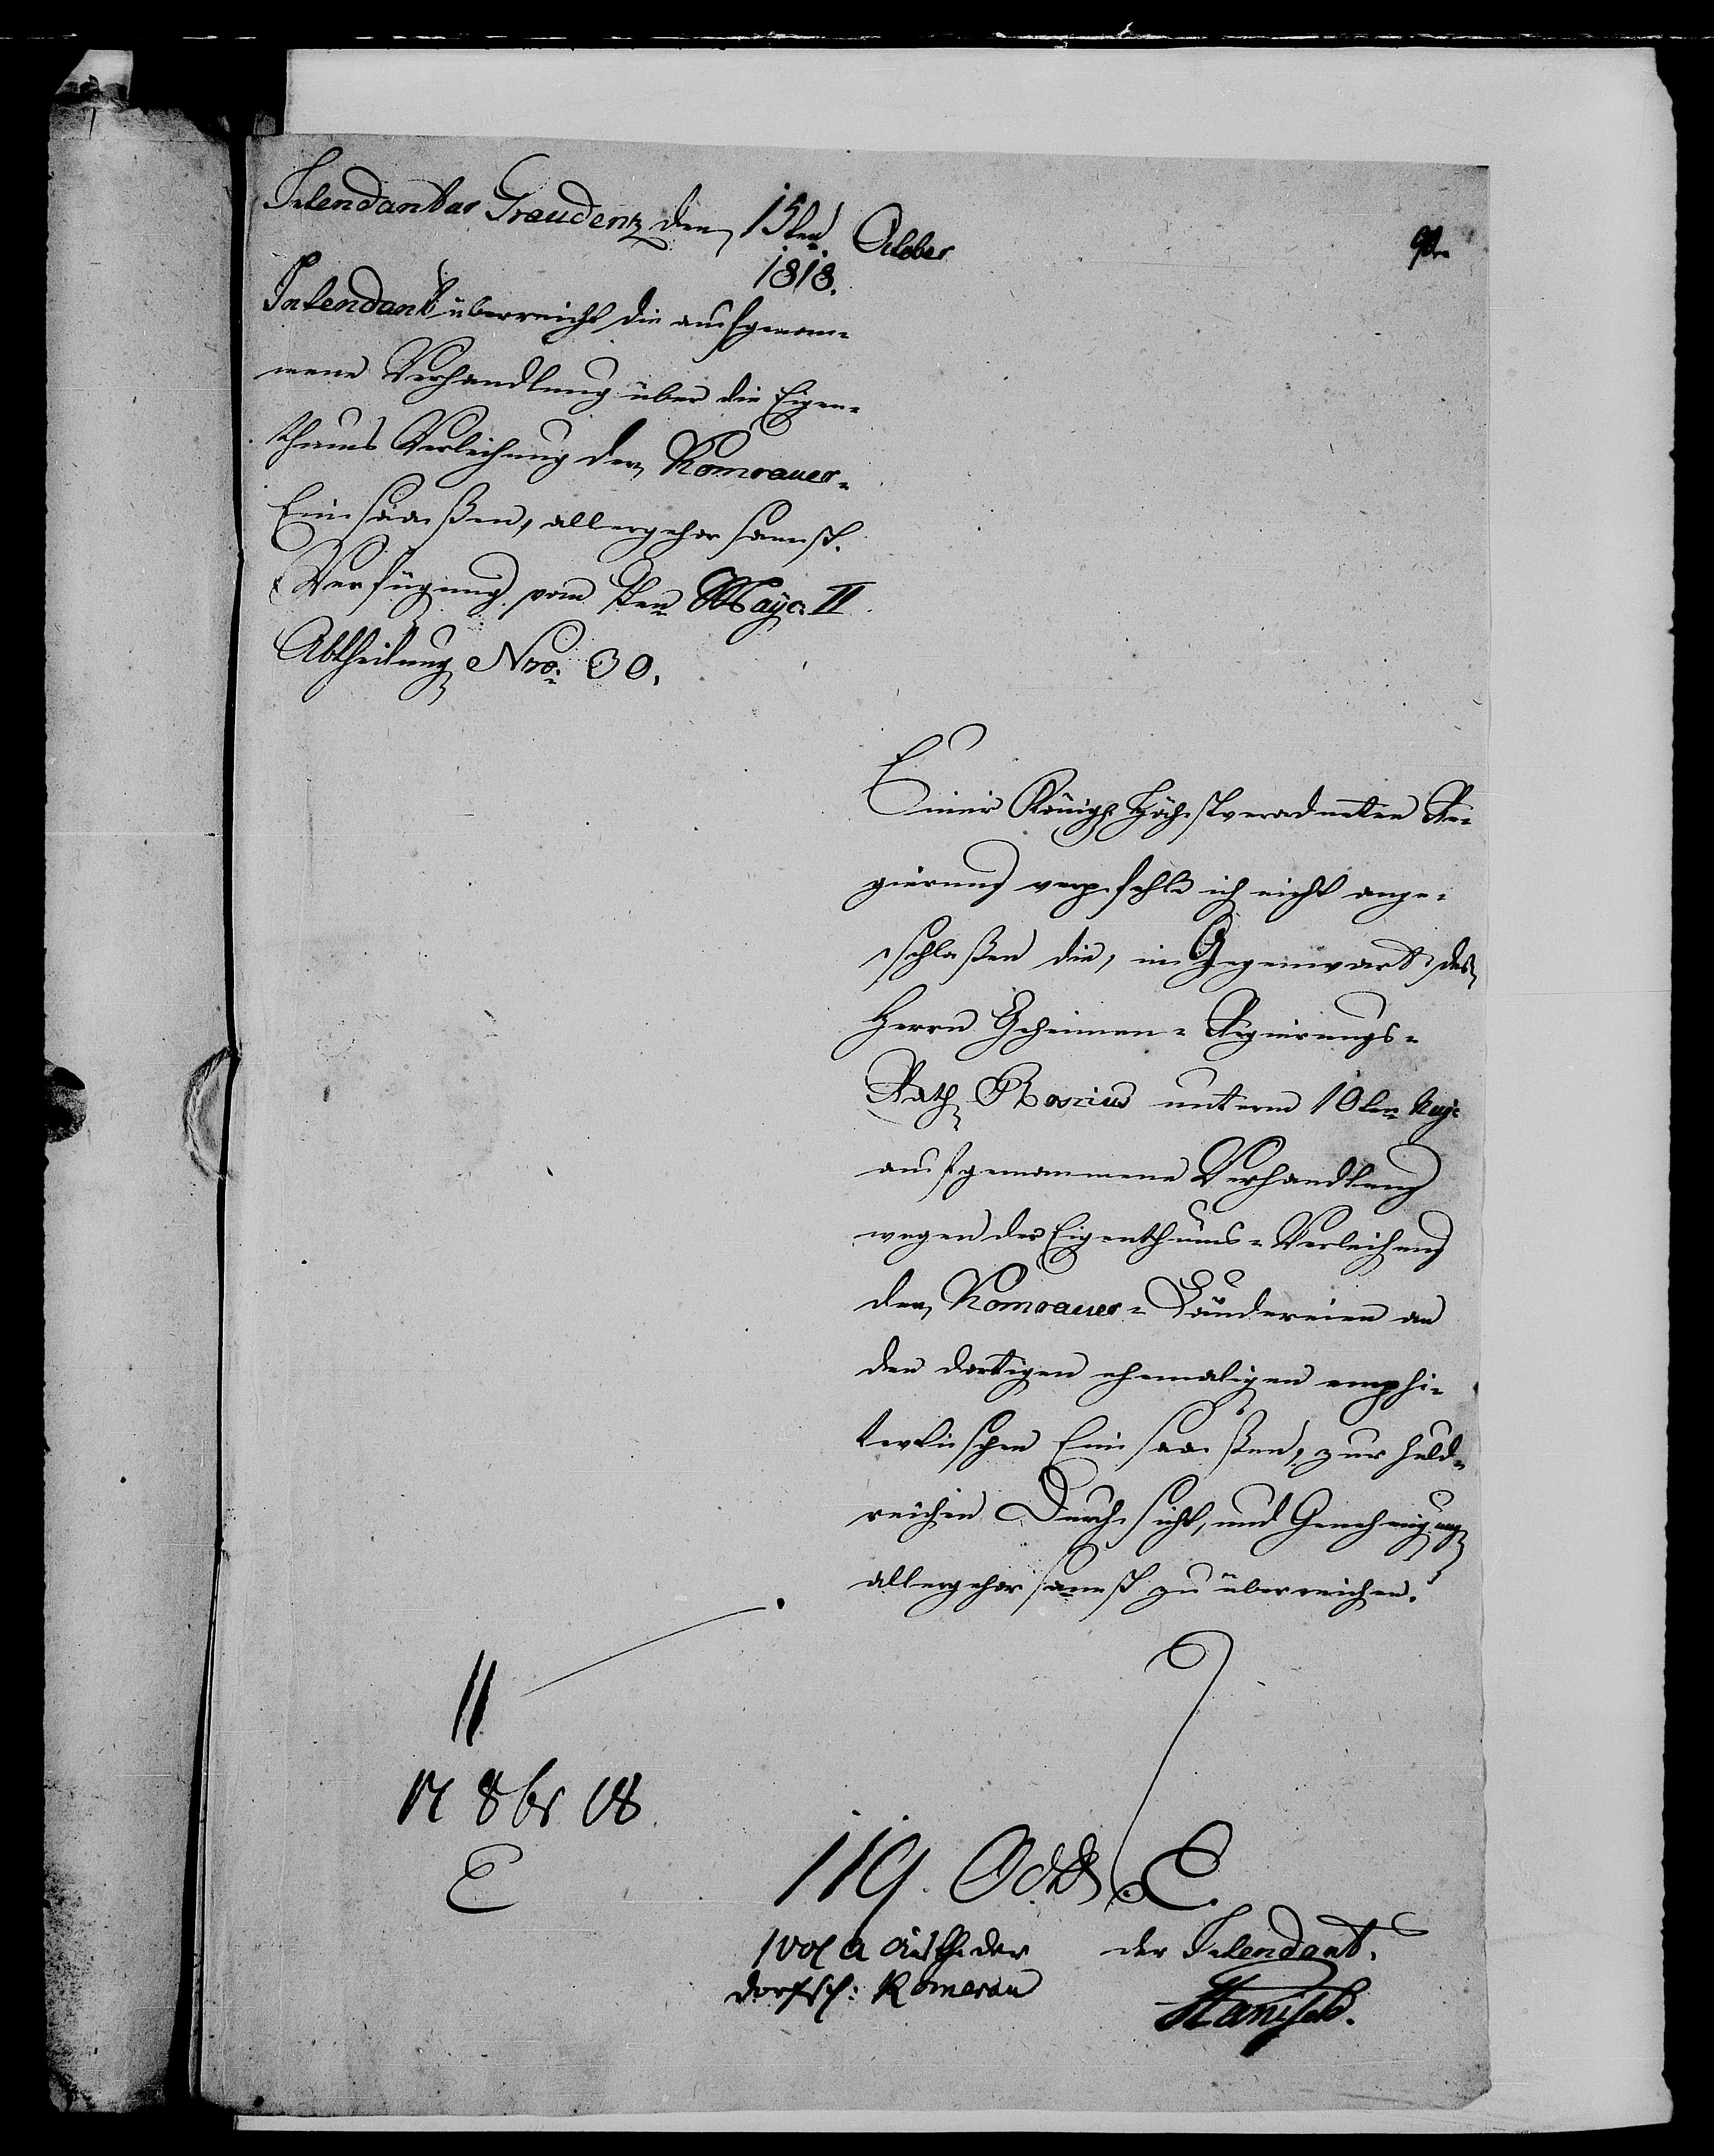 Intendantur Graudenz den 15ten October
1818.
Intendant überreicht die aufgenom-
mene Verhandlung über die Eigen-
thums Verleihung der Komrauer-
Einsaaßen, allergehorsamst.
Verfügung vom 7ten May c. II
Abtheilung Nro: 30.
Einer Königl. Höchstverordneten Re-
gierung verfehle ich nicht ange-
schlossen die, in Gegenwart des
Herrn Geheimen-Regierungs-
Rath Roscius unterm 10ten
aufgenommene Verhandlung
wegen der Eigenthums-Verleihung
der Komrauer-Ländereien an
den dortigen ehemaligen emphi-
tevtischen Einsaaßen, zur huld-
reichen Durchsicht, und Genehmigung
allergehorsamst zu überreichen.
II
17 8br 18
E
119. Octb. E.
1 vol a der
dorfsch: Komerau
der Intendant.
Stanisch.